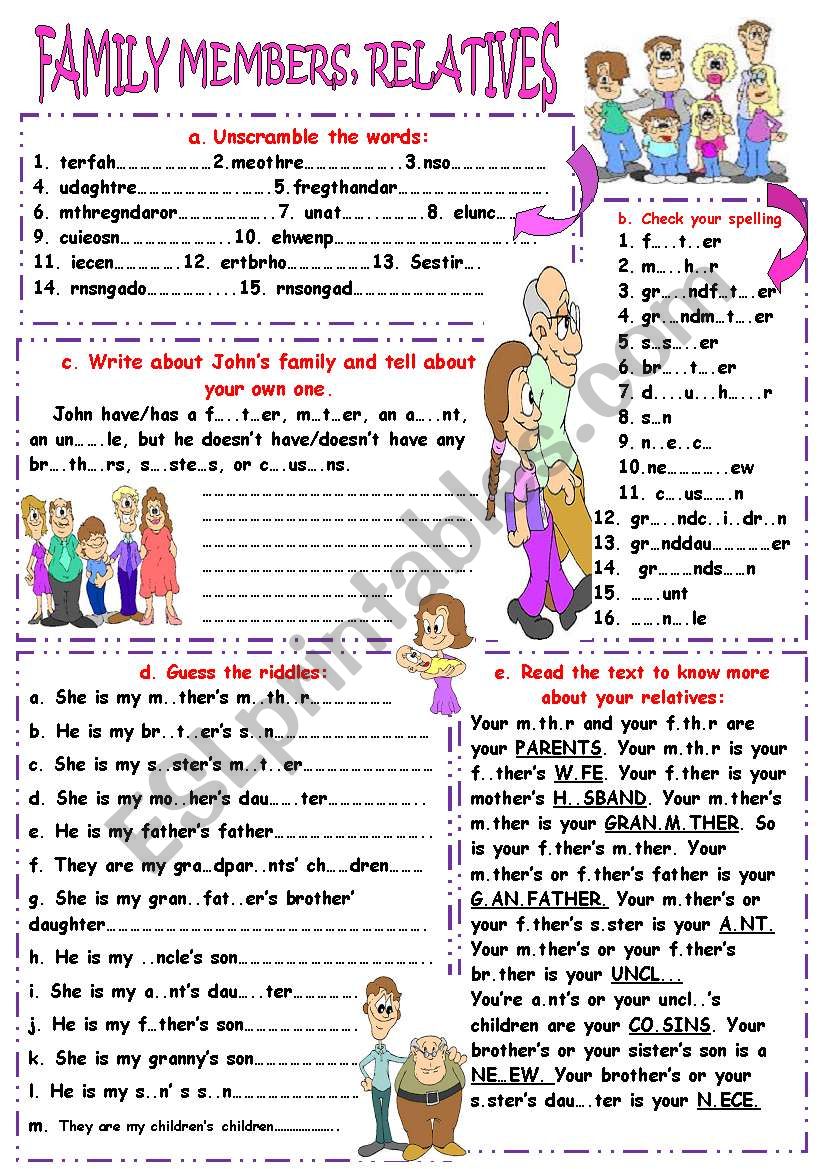 FAMILY MEMBERS, RELATIVES
a. Unscramble the words:
1. terfah…………………2.meothre………………..3.nso…………………
4. udaghtre………………….…….5.fregthandar…………………………….
6. mthregndaror………………..7. unat……..……….8. elunc……
9. cuieosn…………………..10. ehwenp…………………………………….
11. iecen………….12. ertbrho………………13. Sestir….
14. rnsngado…………....15. rnsongad…………………………
b. Check your spelling
1. f….t..er
2. m….h..r
3. gr…..ndf…t….er
4. gr….ndm…t….er
5. s…s…..er
6. br…..t….er
7. d....u...h…...r
8. s…n
9. n..e..c…
10.ne…………..ew
11. c….us…….n
12. gr…..ndc..i..dr..n
13. gr…nddau……………er
14. gr………nds……n
15. …….unt
16. …….n….le
c. Write about John's family and tell about
your own one.
John have/has a f…..t…er, m…t…er, an a…..nt,
an un…….le, but he doesn't have/doesn't have any
br….th….rs, s….ste…s, or c….us….ns.
d. Guess the riddles:
a. She is my m..ther's m..th..r………………
b. He is my br..t..er's s..n…………………………
c. She is my s..ster's m..t..er……………………
d. She is my mo..her's dau……ter………………..
e. He is my father's father…………………………..
f. They are my gra…dpar..nts' ch……dren………
g. She is my gran..fat…er's brother'
daughter…………………………………………………….
h. He is my ..ncle's son……………………………….
i. She is my a..nt's dau…..ter…………….
j. He is my f…ther's son…………………….
k. She is my granny's son………………….
l. He is my s..n' s s..n…………………….
m. They are my children's children………………..
e. Read the text to know more
about your relatives:
Your m.th.r and your f.th.r are
your PARENTS. Your m.th.r is your
f..ther's W.FE. Your f.ther is your
mother's H..SBAND. Your m.ther's
m.ther is your GRAN.M.THER. So
is your f.ther's m.ther. Your
m.ther's or f.ther's father is your
G.AN.FATHER. Your m.ther's or
your f.ther's s.ster is your A.NT.
Your m.ther's or your f.ther's
br.ther is your UNCL...
You're a.nt's or your uncl..'s
children are your CO.SINS. Your
brother's or your sister's son is a
NE…EW. Your brother's or your
s.ster's dau….ter is your N.ECE.
ESLprintables.com